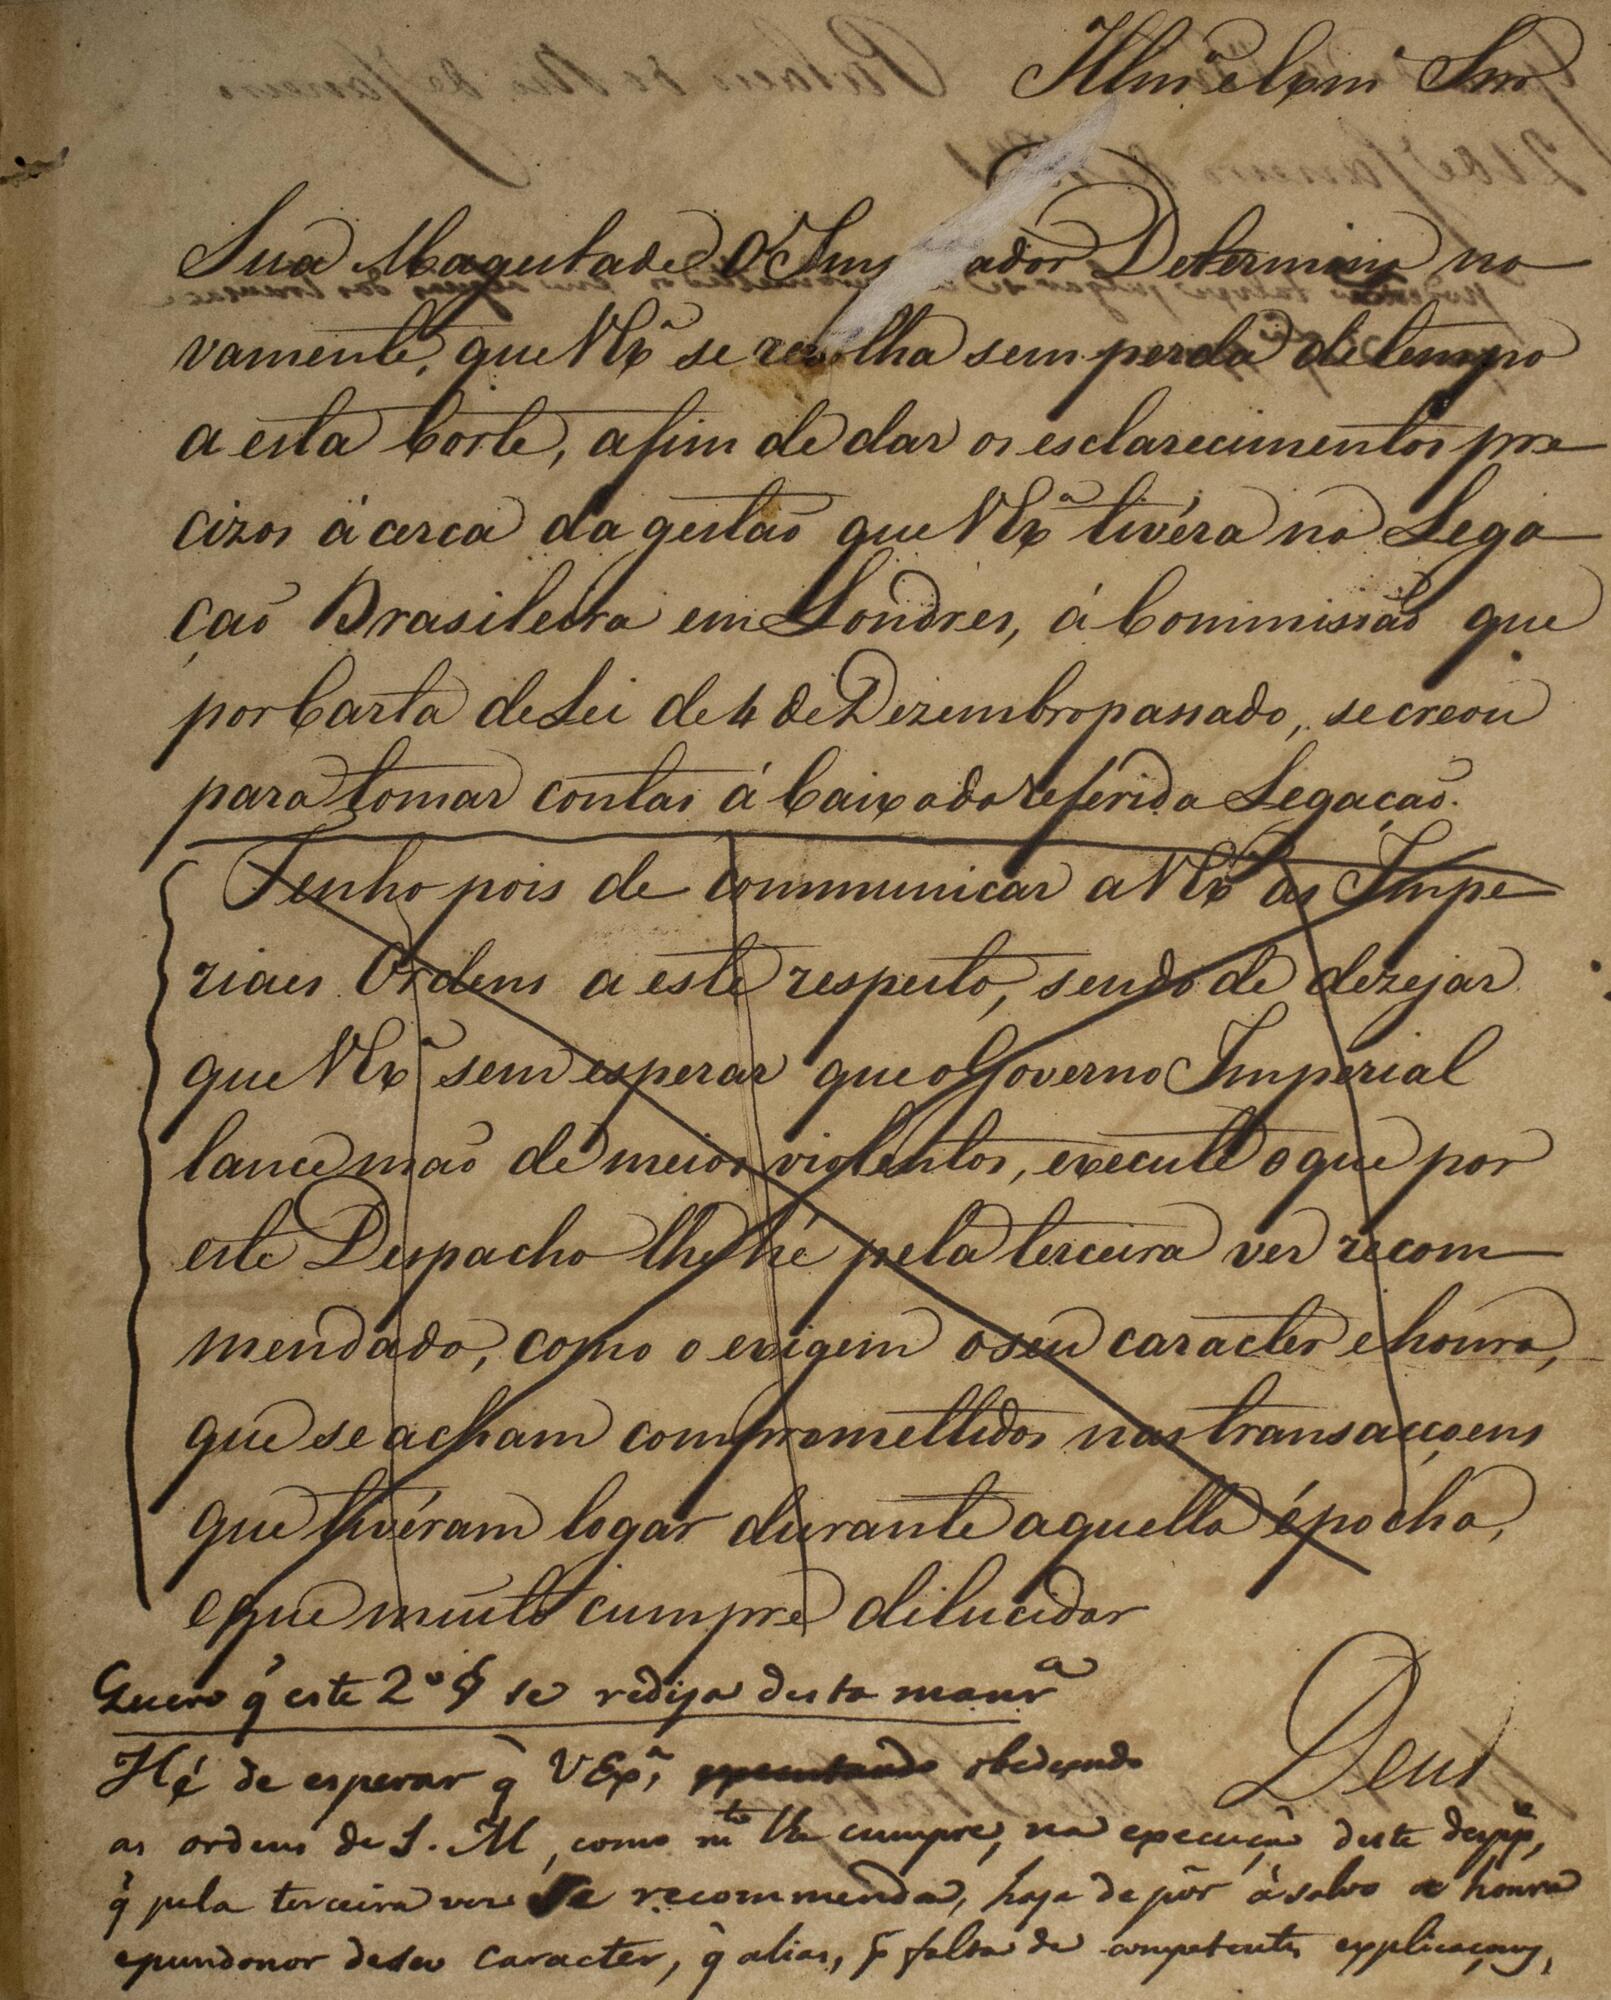 Illmo e Exmo Snr
Sua Magestade O Imp ador Determina no
vamente, que V Exª se recolha sem perda de tempo
a esta Corte, afim de dar os esclarecimentos pre
cizos á cerca da gestaõ que V Exª tivéra na Lega
çaõ Brasileira em Londres, á Commissaõ que
por Carta de Lei de 4 de Dezembro passado, se creou
para tomar contas á Caixa da referida Legaçaõ.
Tenho pois de communicar a V Exª as Impe
riaes Ordens a este respeito, sendo de dezejar
que V Exª sem esperar que o Governo Imperial
lance maõ de meios violentos, execute o que por
este Despacho lhe hé pela terceira vez recom
mendado, como o exigem o seu caracter e honra,
que se acham compromettidos nas transacçoens
que tivéram logar durante aquella épocha,
e que muito cumpre dilucidar
Quero q̃ este 2º § se redija desta manrª
Deus
Hé de esperar q̃ V Exª, obedecendo
as ordens de S. M, como mto lhe cumpre, na execuçaõ deste desp,
q̃ pela terceira vez se recommenda, haja de pôr á salvo a honra
e pundonor de seu caracter, q̃ alias, p falta de competentes explicaçoens,